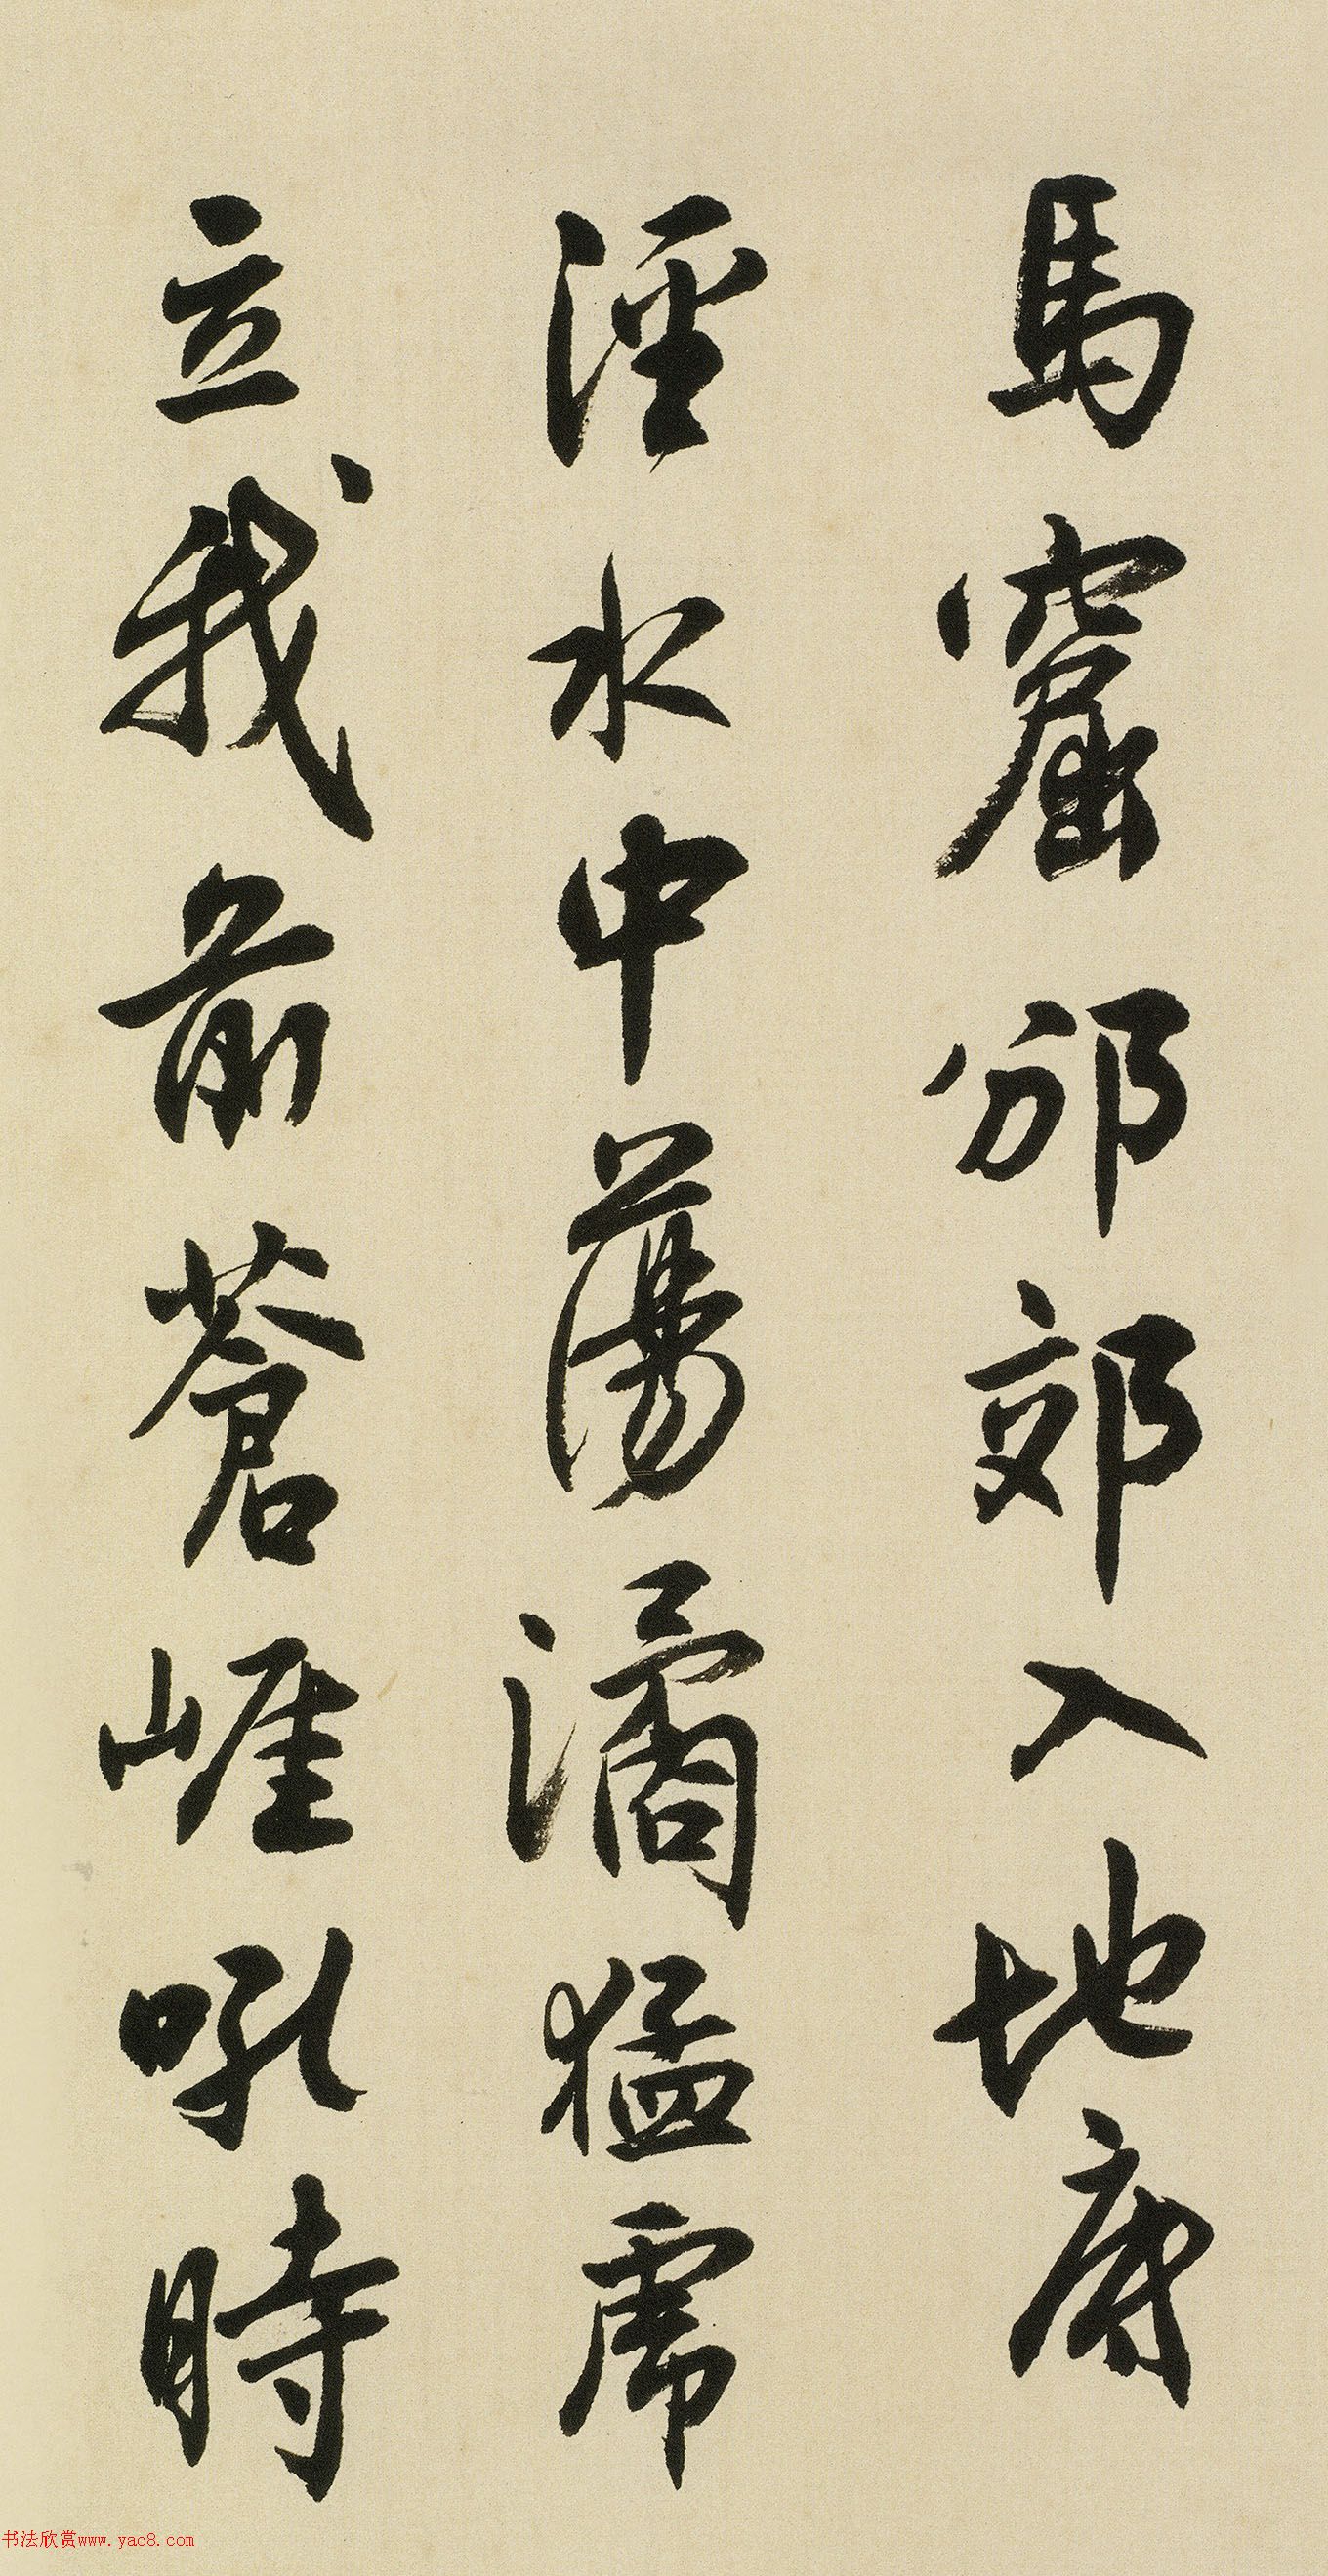 馬窟邠郊入地底
涇水中蕩潏猛虎
立我前蒼崕吼時
书法欣赏www.yac8.com